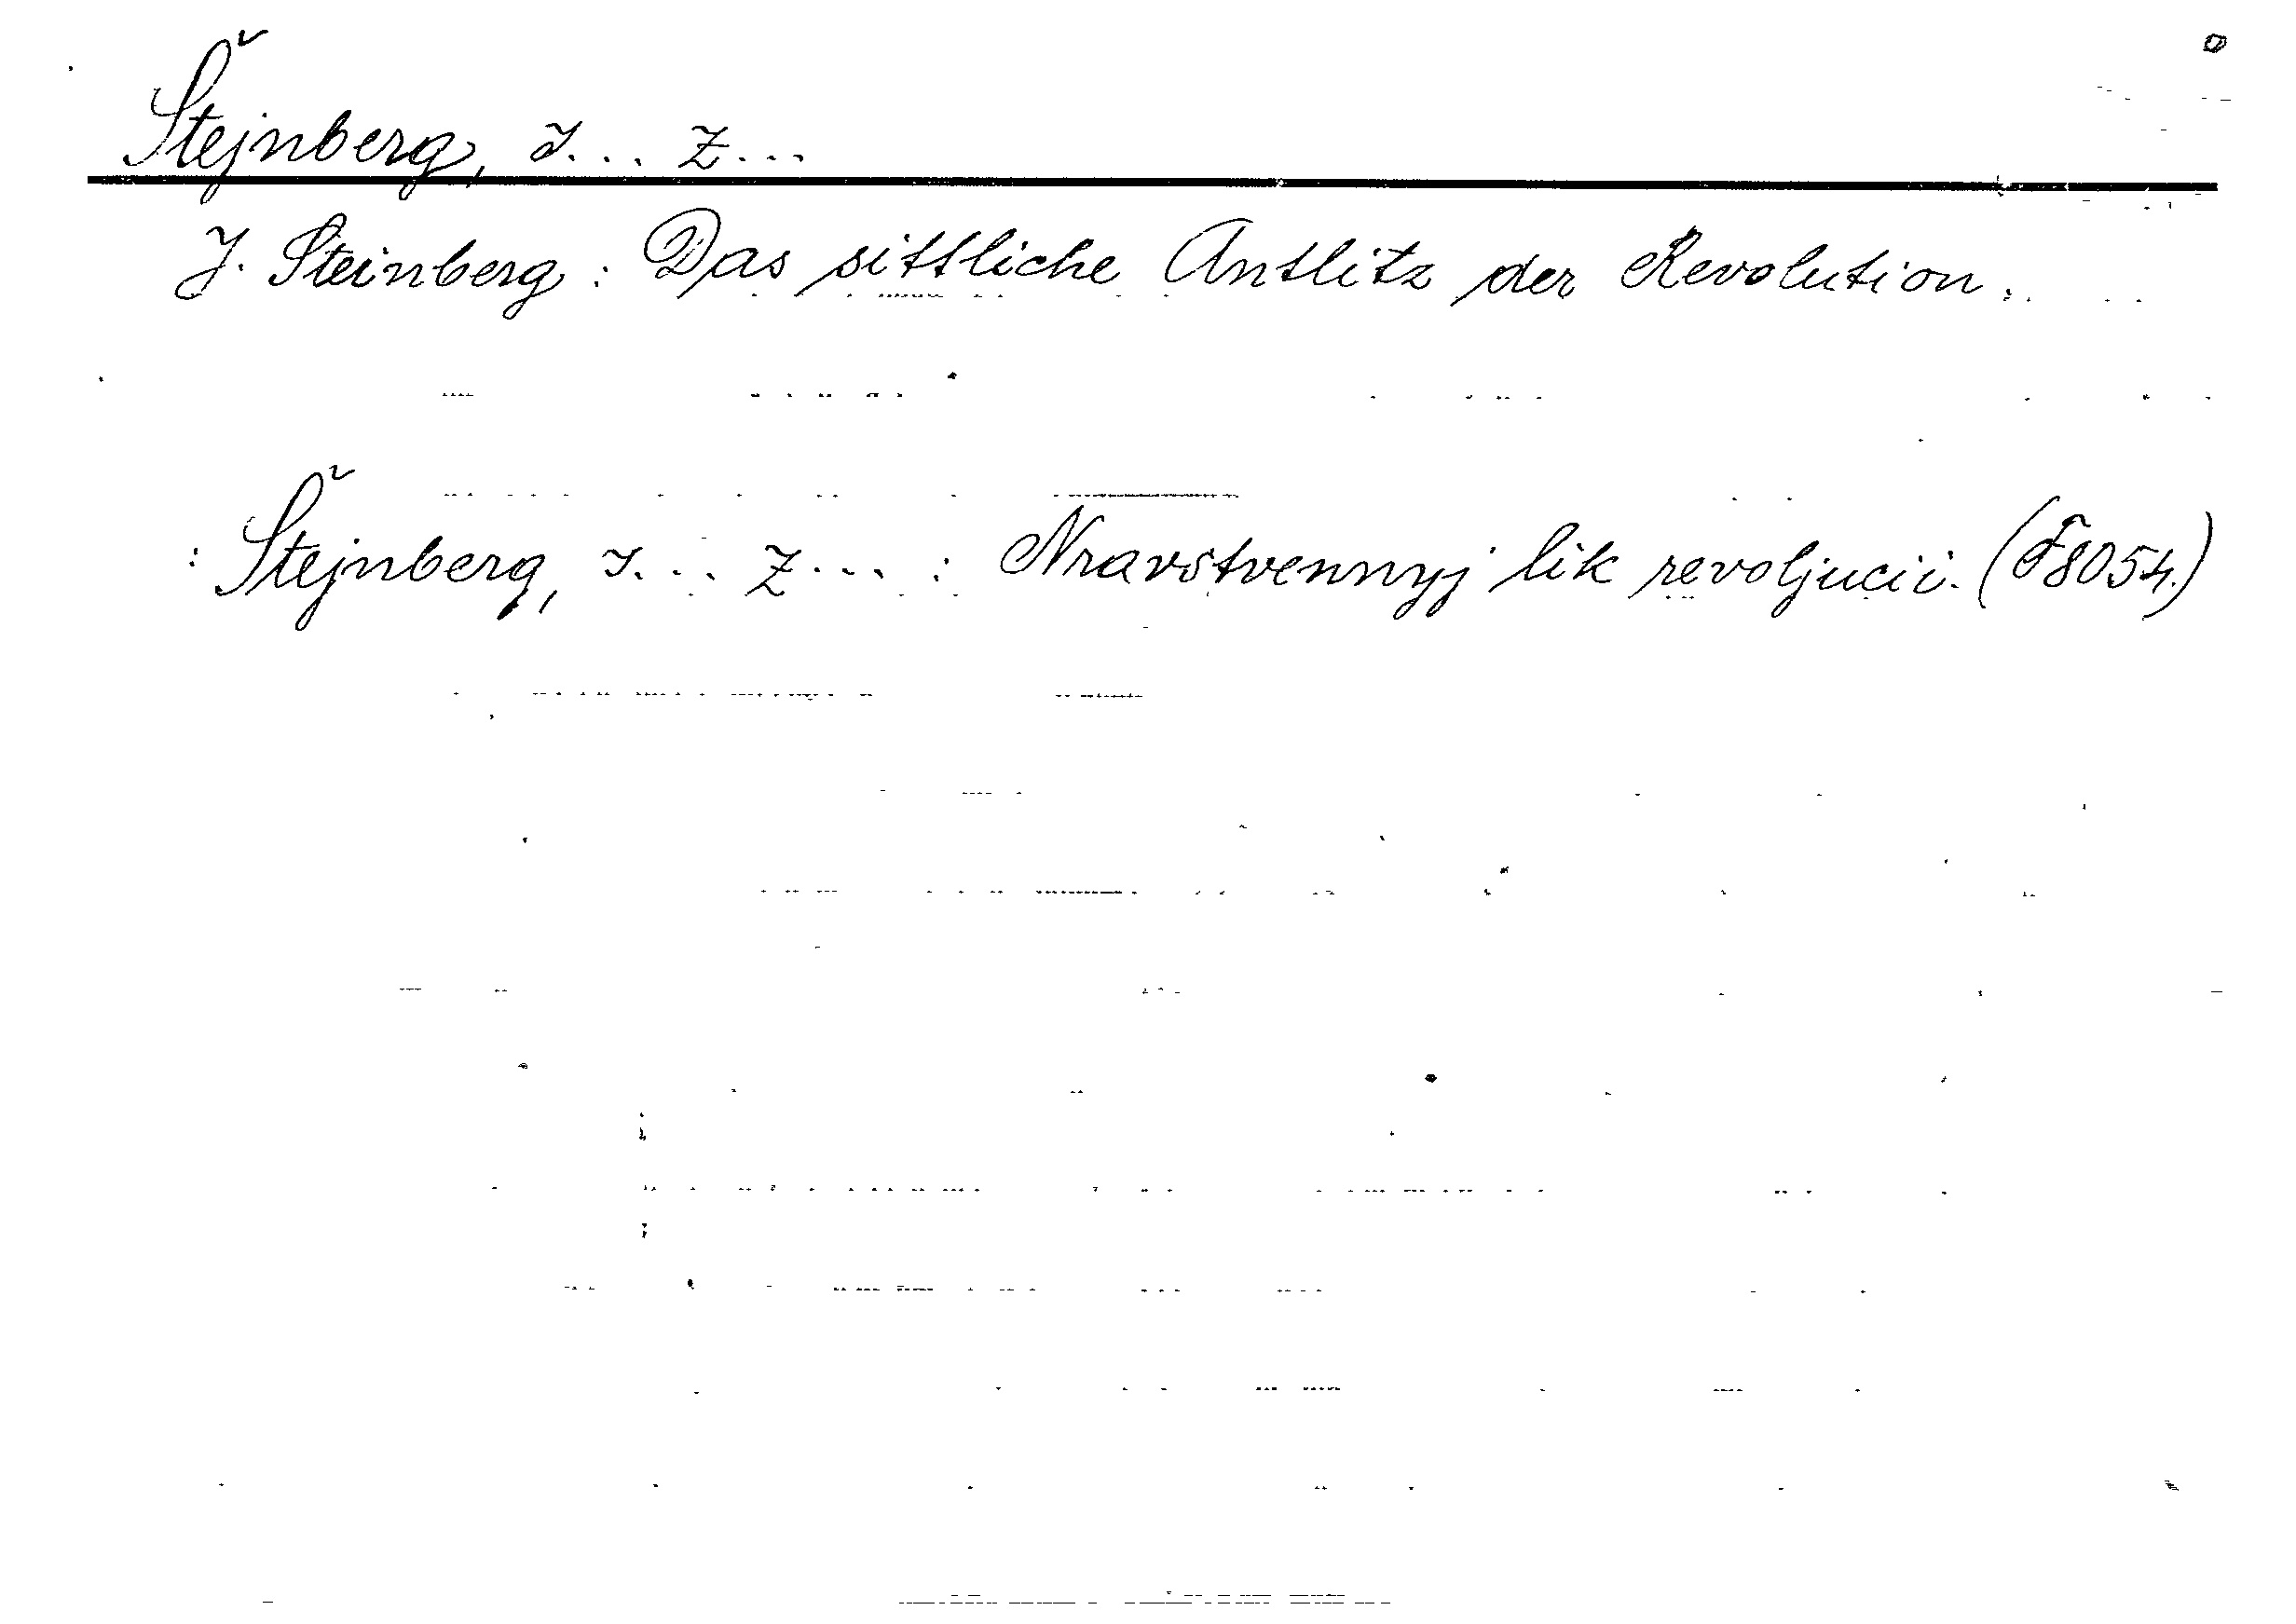 Štejnberg, I... Z...
J. Steinberg: Das sittliche Antlitz der Revolution.
: Štejnberg, I... Z... : Nravstvennyj lik revoljucii. (F8054)